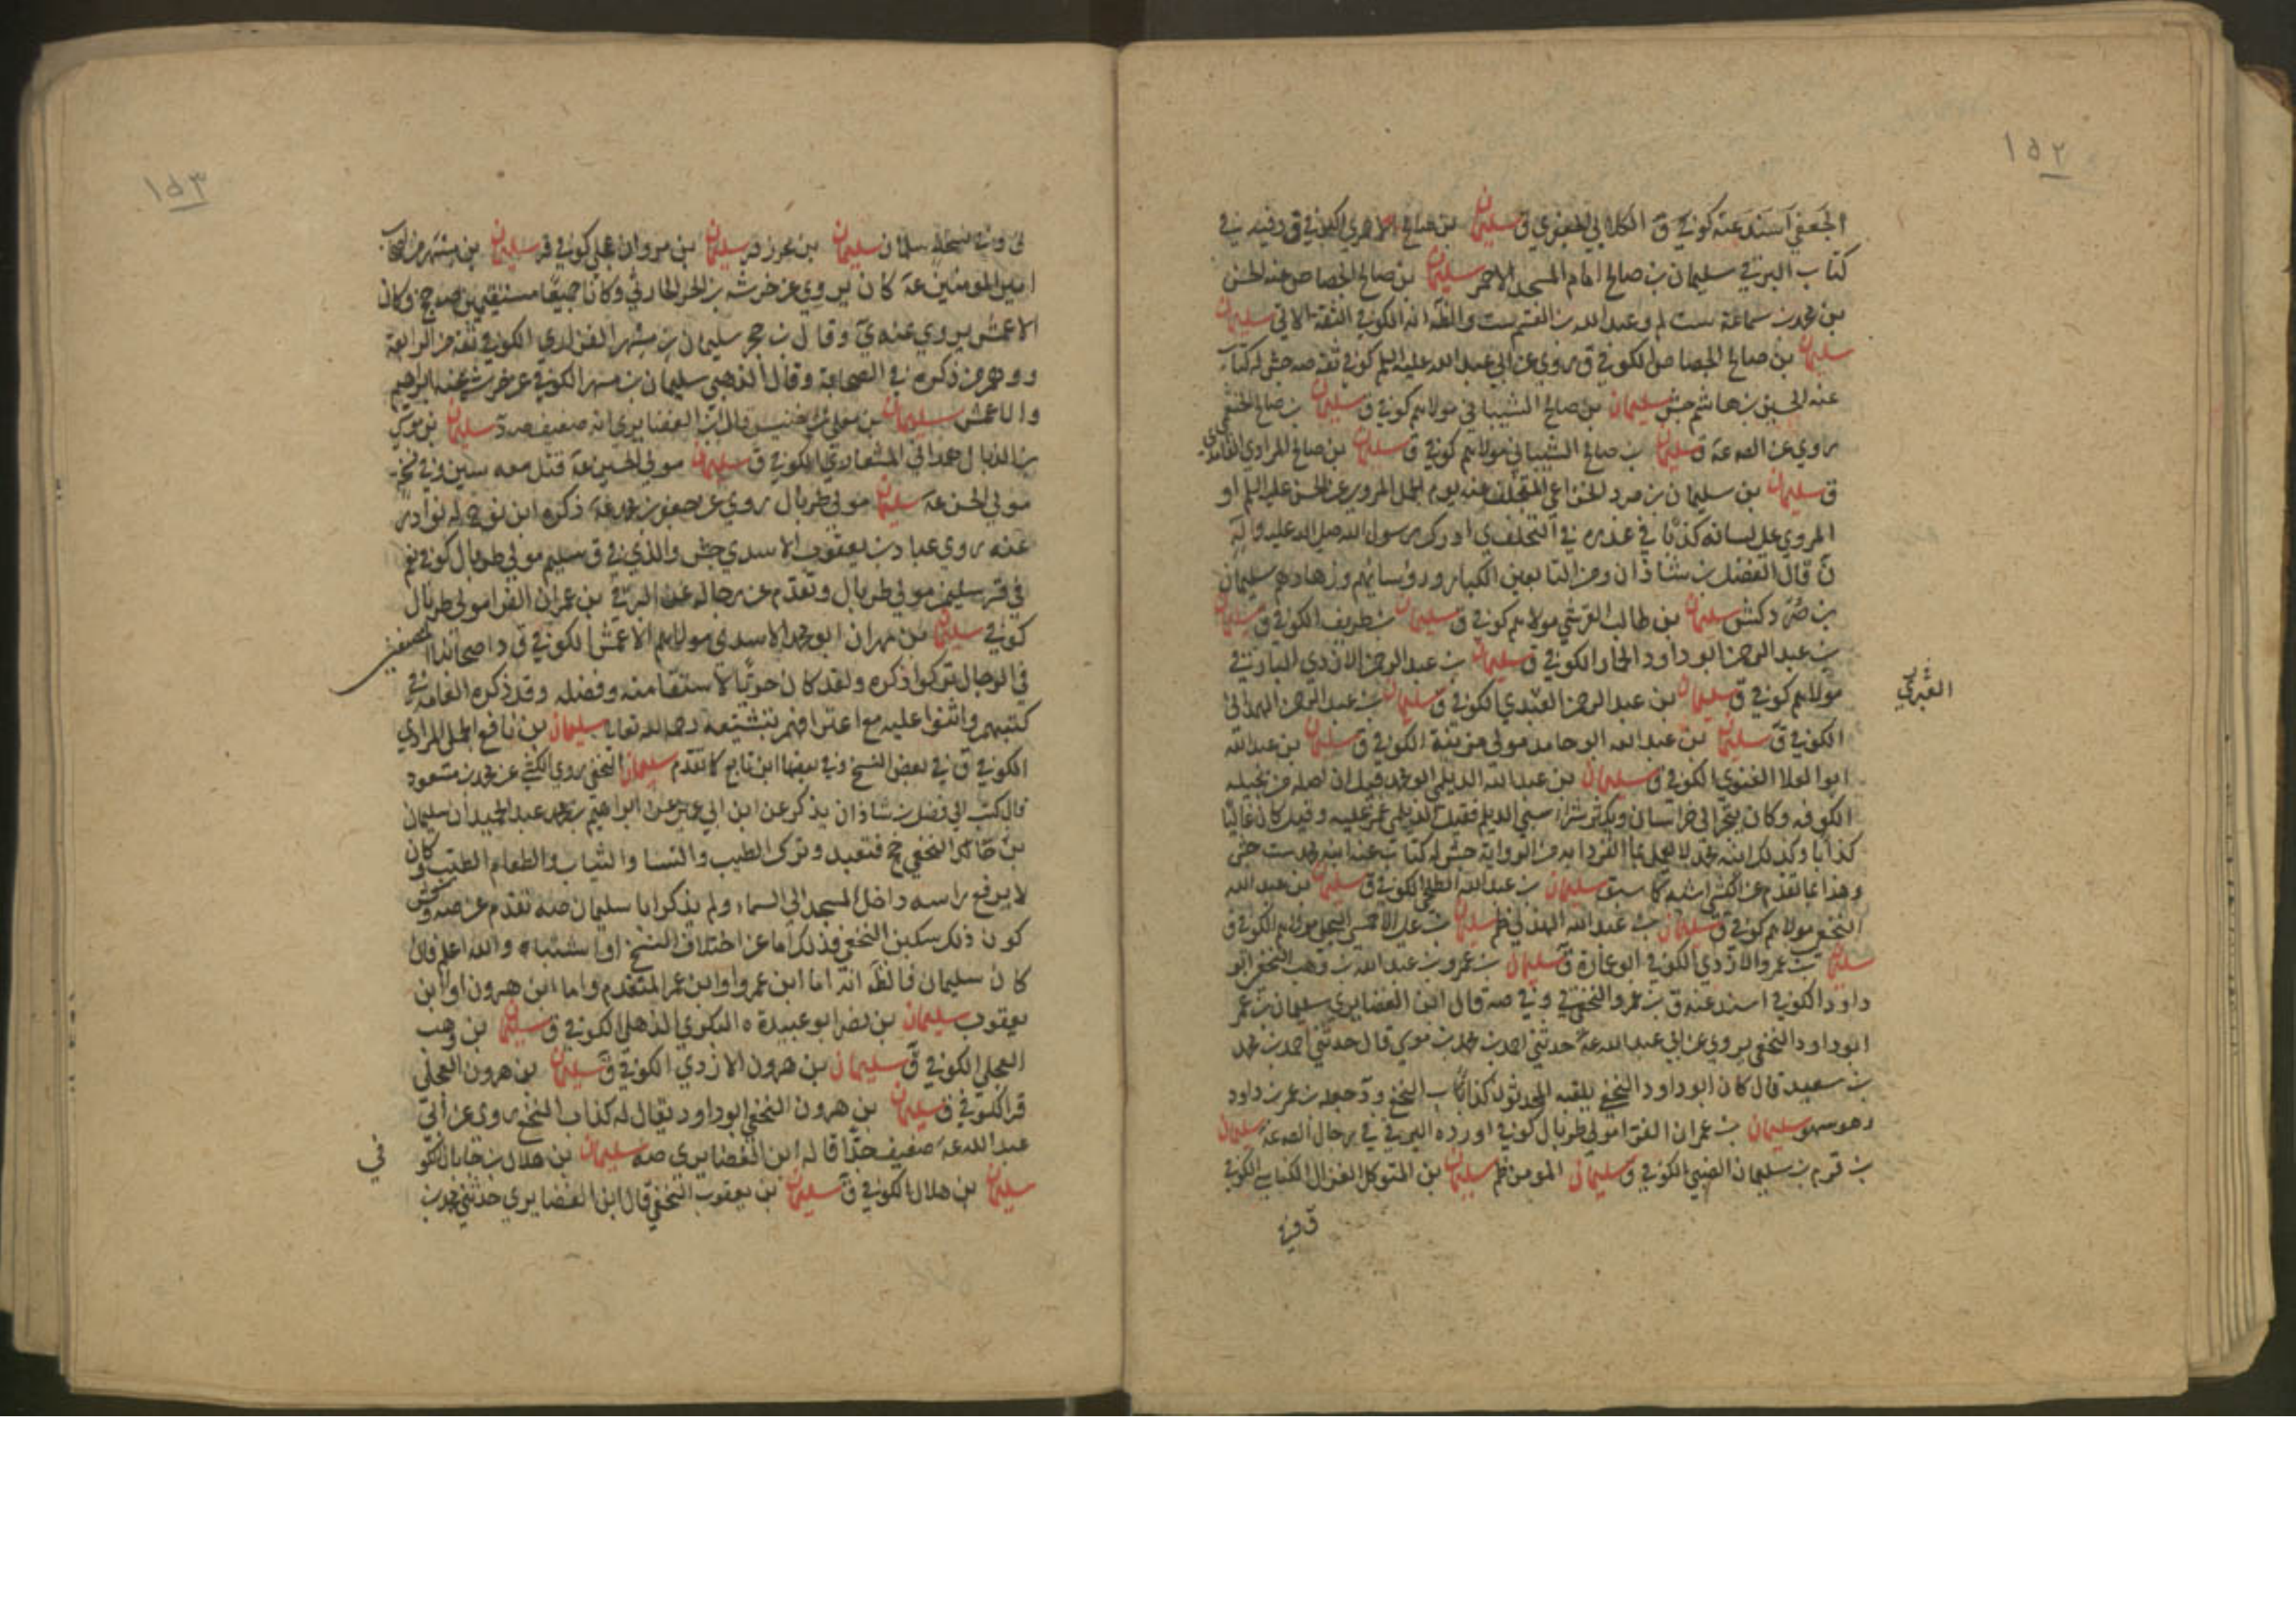 ١٥٢
الجعفي اسند عنه كوفي ق الكلابي الجعفري ق سليمان بن صالح الاحمري الكوفي ق وفيه في
كتاب البرقي سليمان بن صالح امام المسجد الاحمر سليمان بن صالح الجصاص عنه الحسن
بن محمد بن سماعة ست لم وعبد الله بن القسم ست والظ انه الكوفي الثقة الاتي سليمان
سليمان بن صالح الجصاص الكوفي ق روى عن ابي عبد الله عليه السلم كوفي ثقة صه جش له كتاب
عنه الحسين بن هاشم جش سليمان بن صالح الشيباني مولاهم كوفي ق سليمان بن صالح الخثعمي
روى عن الصه عه ق سليمان بن صالح الشيباني مولاهم كوفي ق سليمان بن صالح المرادي
ق سليمان بن سليمان بن صرد الخزاعي المتخلف عنه يوم الجمل المروي عن الحسن عليه السلم او
المروي على لسانه كذبا في عذره في التخلف ي ادرك رسول الله صلى الله عليه واله
ن قال الفضل بن شاذان ومن التابعين الكبار ورؤسائهم وزهادهم سليمان
بن صرد كش سليمان بن طالب القرشي مولاهم كوفي ق سليمان بن طريف الكوفي ق سليمان
بن عبد الرحمن ابو داود الحمار الكوفي ق سليمان بن عبد الرحمن الازدي البارقي
مولاهم كوفي ق سليمان بن عبد الرحمن العبدي الكوفي ق سليمان بن عبد الرحمن الهمداني
الكوفي ق سليمان بن عبد الله ابو حامد مولى مزينة الكوفي ق سليمان بن عبد الله
ابو العلا الغنوي الكوفي ق سليمان بن عبد الله الديلمي ابو محمد قيل ان اصله من بجيله
الكوفه وكان يتجر الى خراسان ويكثر شراء سبي الديلم فقيل الديلمي غمز عليه وقيل كان غاليا
كذابا وكذلك ابنه محمد لا يعمل بما انفردا به من الرواية جش له كتاب عنه ابنه محمد ست جش
وهذا ما تقدم عن كش اشبه كما سبق سليمان بن عبد الله الطلحي الكوفي ق سليمان بن عبد الله
النخعي مولاهم كوفي ق سليمان بن عبد الله الهذلي ظم سليمان بن علي الاحمسي البجلي مولاهم الكوفي ق
سليمان بن عمرو الازدي الكوفي ابو عمارة ق سليمان بن عمرو بن عبد الله بن وهب النخعي ابو
داود الكوفي اسند عنه ق بن عمرو النخعي وفي صه قال ابن الغضايري سليمان بن عمر
ابو داود النخعي يروي عن ابي عبد الله عه حدثني احمد بن محمد بن موسى قال حدثني احمد بن محمد
بن سعيد قال كان ابو داود النخعي يلقبه المحدثون كذاب النخع ود جعله بن عمر بن داود
وهو سهو سليمان بن عمران الفرا مولى طربال كوفي اورده البرقي في رجال الصه عه سليمان
بن قرم بن سليمان الضبي الكوفي ق سليمان المومن ظم سليمان بن المتوكل الغزال الكناسي الكوفي
ق وفي
العنبري
١٥٣
سليمان بن محرز قر سليمان بن مروان بجلي كوفي قر سليمان بن مسهر من اصحاب
امير المومنين عه كان يروي عن خرشه بن الحر الحارثي وكانا جميعا مستقيمين صه جخ وكان
الاعمش يروي عنه ي وقال بن حجر سليمان بن مسهر الفزاري الكوفي ثقة من الرابعة
ووهم من ذكره في الصحابة وقال الذهبي سليمان بن مسهر الكوفي عن خرشه عنه ابراهيم
والاعمش سليمان بن معلى بن خنيس قال ابن الغضايري انه ضعيف صه د سليمان بن موسى
بن الذيال همداني المشعاري الكوفي ق سليمان مولى الحسين عه قتل معه سين وفي نخ
مولى الحسن عه سليمان مولى طربال روى عن جعفر بن محمد عه ذكره ابن نوح له نوادر
عنه روى عباد بن يعقوب الاسدي جش والذي في ق سليم مولى طربال كوفي نعم
في قر سليمن مولى طربال وتقدم عن رجاله عن البرقي بن عمران الفرا مولى طربال
كوفي سليمان بن مهران ابو محمد الاسدي مولاهم الاعمش الكوفي ق د اصحابنا المصنفين
في الرجال تركوا ذكره ولقد كان حريا لاستقامته وفضله وقد ذكره العامة في
كتبهم واثنوا عليه مع اعترافهم بتشيعه رحمه الله تعالى سليمان بن نافع الجملي المرادي
الكوفي ق في بعض النسخ وفي بعضها ابن تابع كما تقدم سليمان النخعي روى الكشي عن محمد بن مسعود
قال كتب الي فضل بن شاذان يذكر عن ابن ابي عمير عن ابراهيم بن عبد الحميد ان سليمان
بن خالد النخعي حج فتعبد وترك الطيب والنسا والثياب والطعام الطيب وكان
لا يرفع راسه داخل المسجد الى السماء ولم يذكر ابا سليمان صه تقدم عن صه وكش
كون ذلك سكين النخعي فذلك اما عن اختلاف النسخ او اشتباه والله اعلم فان
كان سليمان فالظ انه اما ابن عمرو او ابن عمر المتقدم واما ابن هرون او ابن
يعقوب سليمان بن نصر ابو عبيدة البكري الذهلي الكوفي ق سليمان بن وهب
العجلي الكوفي ق سليمان بن هرون الازدي الكوفي ق سليمان بن هرون العجلي
قر الكوفي ق سليمان بن هرون النخعي ابو داود يقال له كذاب النخع روى عن ابي
عبد الله عه ضعيف جدا قاله ابن الغضايري صه سليمان بن هلال بن جابان الكو
في
سليمان بن هلال الكوفي ق سليمان بن يعقوب النخعي قال ابن الغضايري حدثني محمد بن